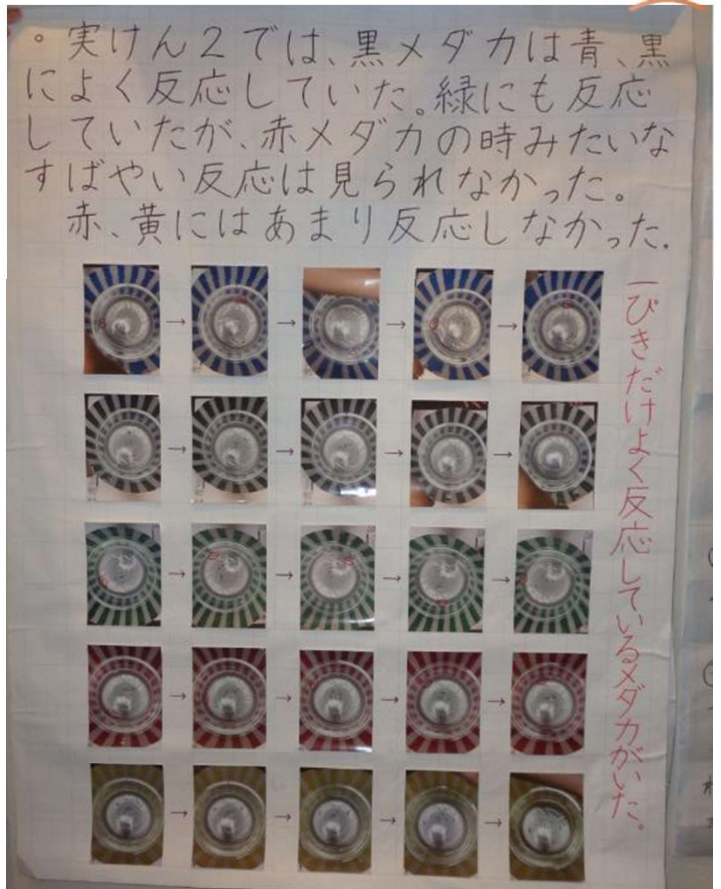 。実けん2では、黒メダカは青、黒
によく反応していた。緑にも反応
していたが、赤メダカの時みたいな
すばやい反応は見られなかった。
赤、黄にはあまり反応しなかった.
一ぴきだけよく反応しているメダカがいた。